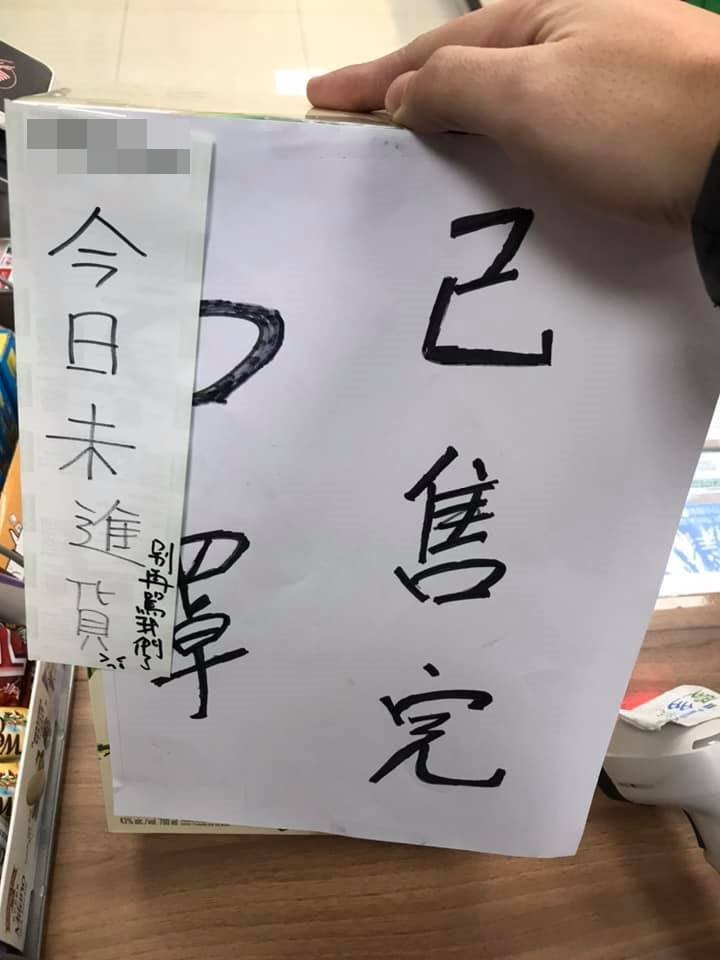 己售完
口罩
今日未進貨
別再罵我們了